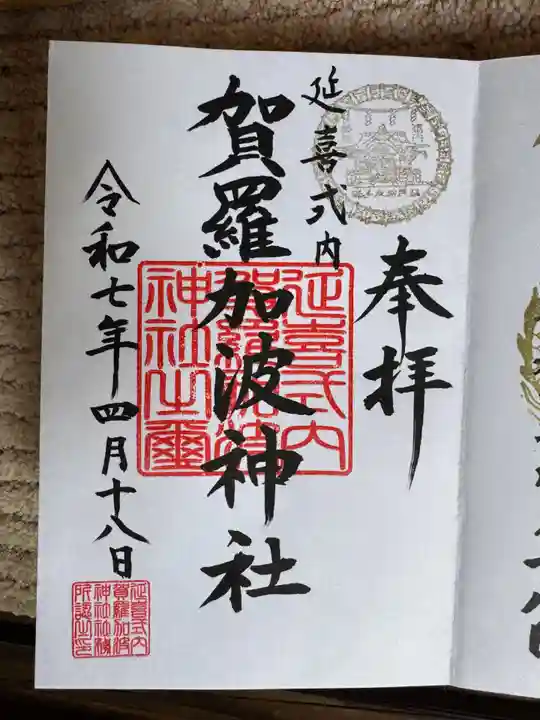 奉拝
延喜式内
賀羅加波神社
令和七年四月十八日
延喜式内
賀羅加波
神社之璽
延喜式内
賀羅加波
神社社務
所認之印